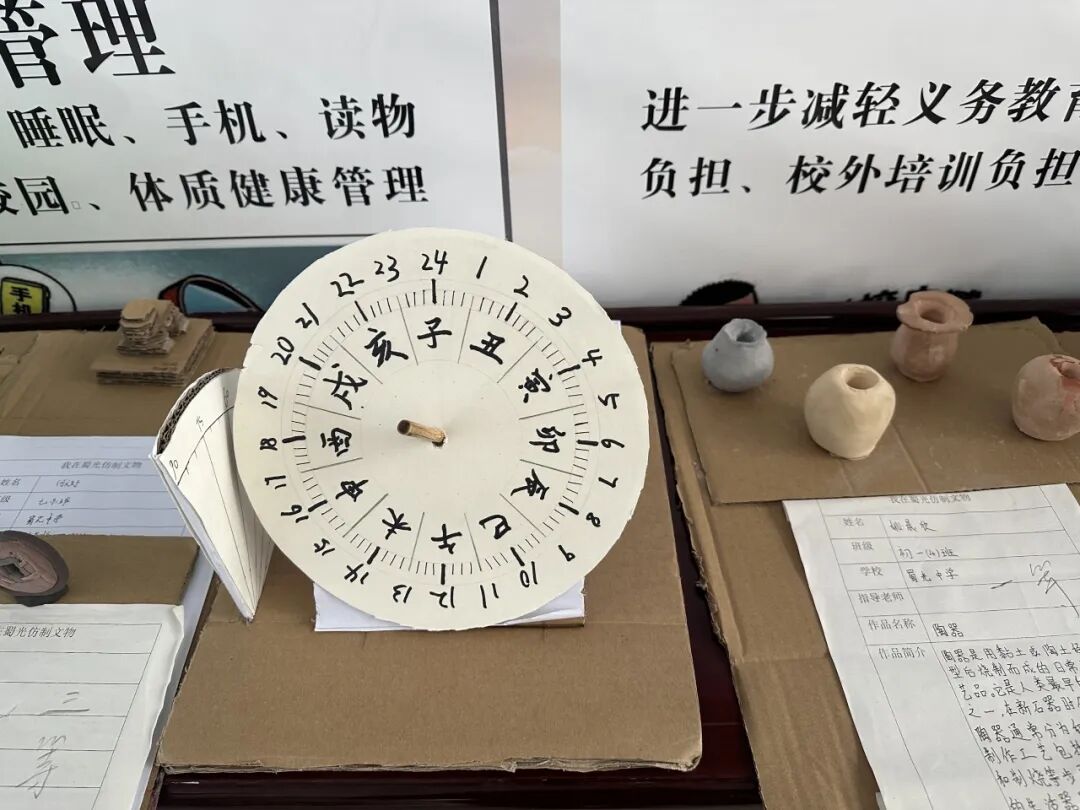 管理
睡眠、手机、读物
校园、体质健康管理
进一步减轻义务教育
负担、校外培训负担
手机
24 1 2 3 4 5 6 7 8 9 10 11 12 13 14 15 16 17 18 19 20 21 22 23
子 丑 寅 卯 辰 巳 午 未 申 酉 戌 亥
我在蜀光仿制文物
姓名
蜀光中学
蜀光仿制文物
三
等
我在蜀光仿制文物
姓名
班级 初一(4)班
学校 蜀光中学
一等
指导老师
作品名称 陶器
作品简介 陶器是用黏土或陶土
型后烧制而成的日常
艺品。它是人类最早
之一,在新石器时
陶器通常分为
制作工艺包
和制烧等步